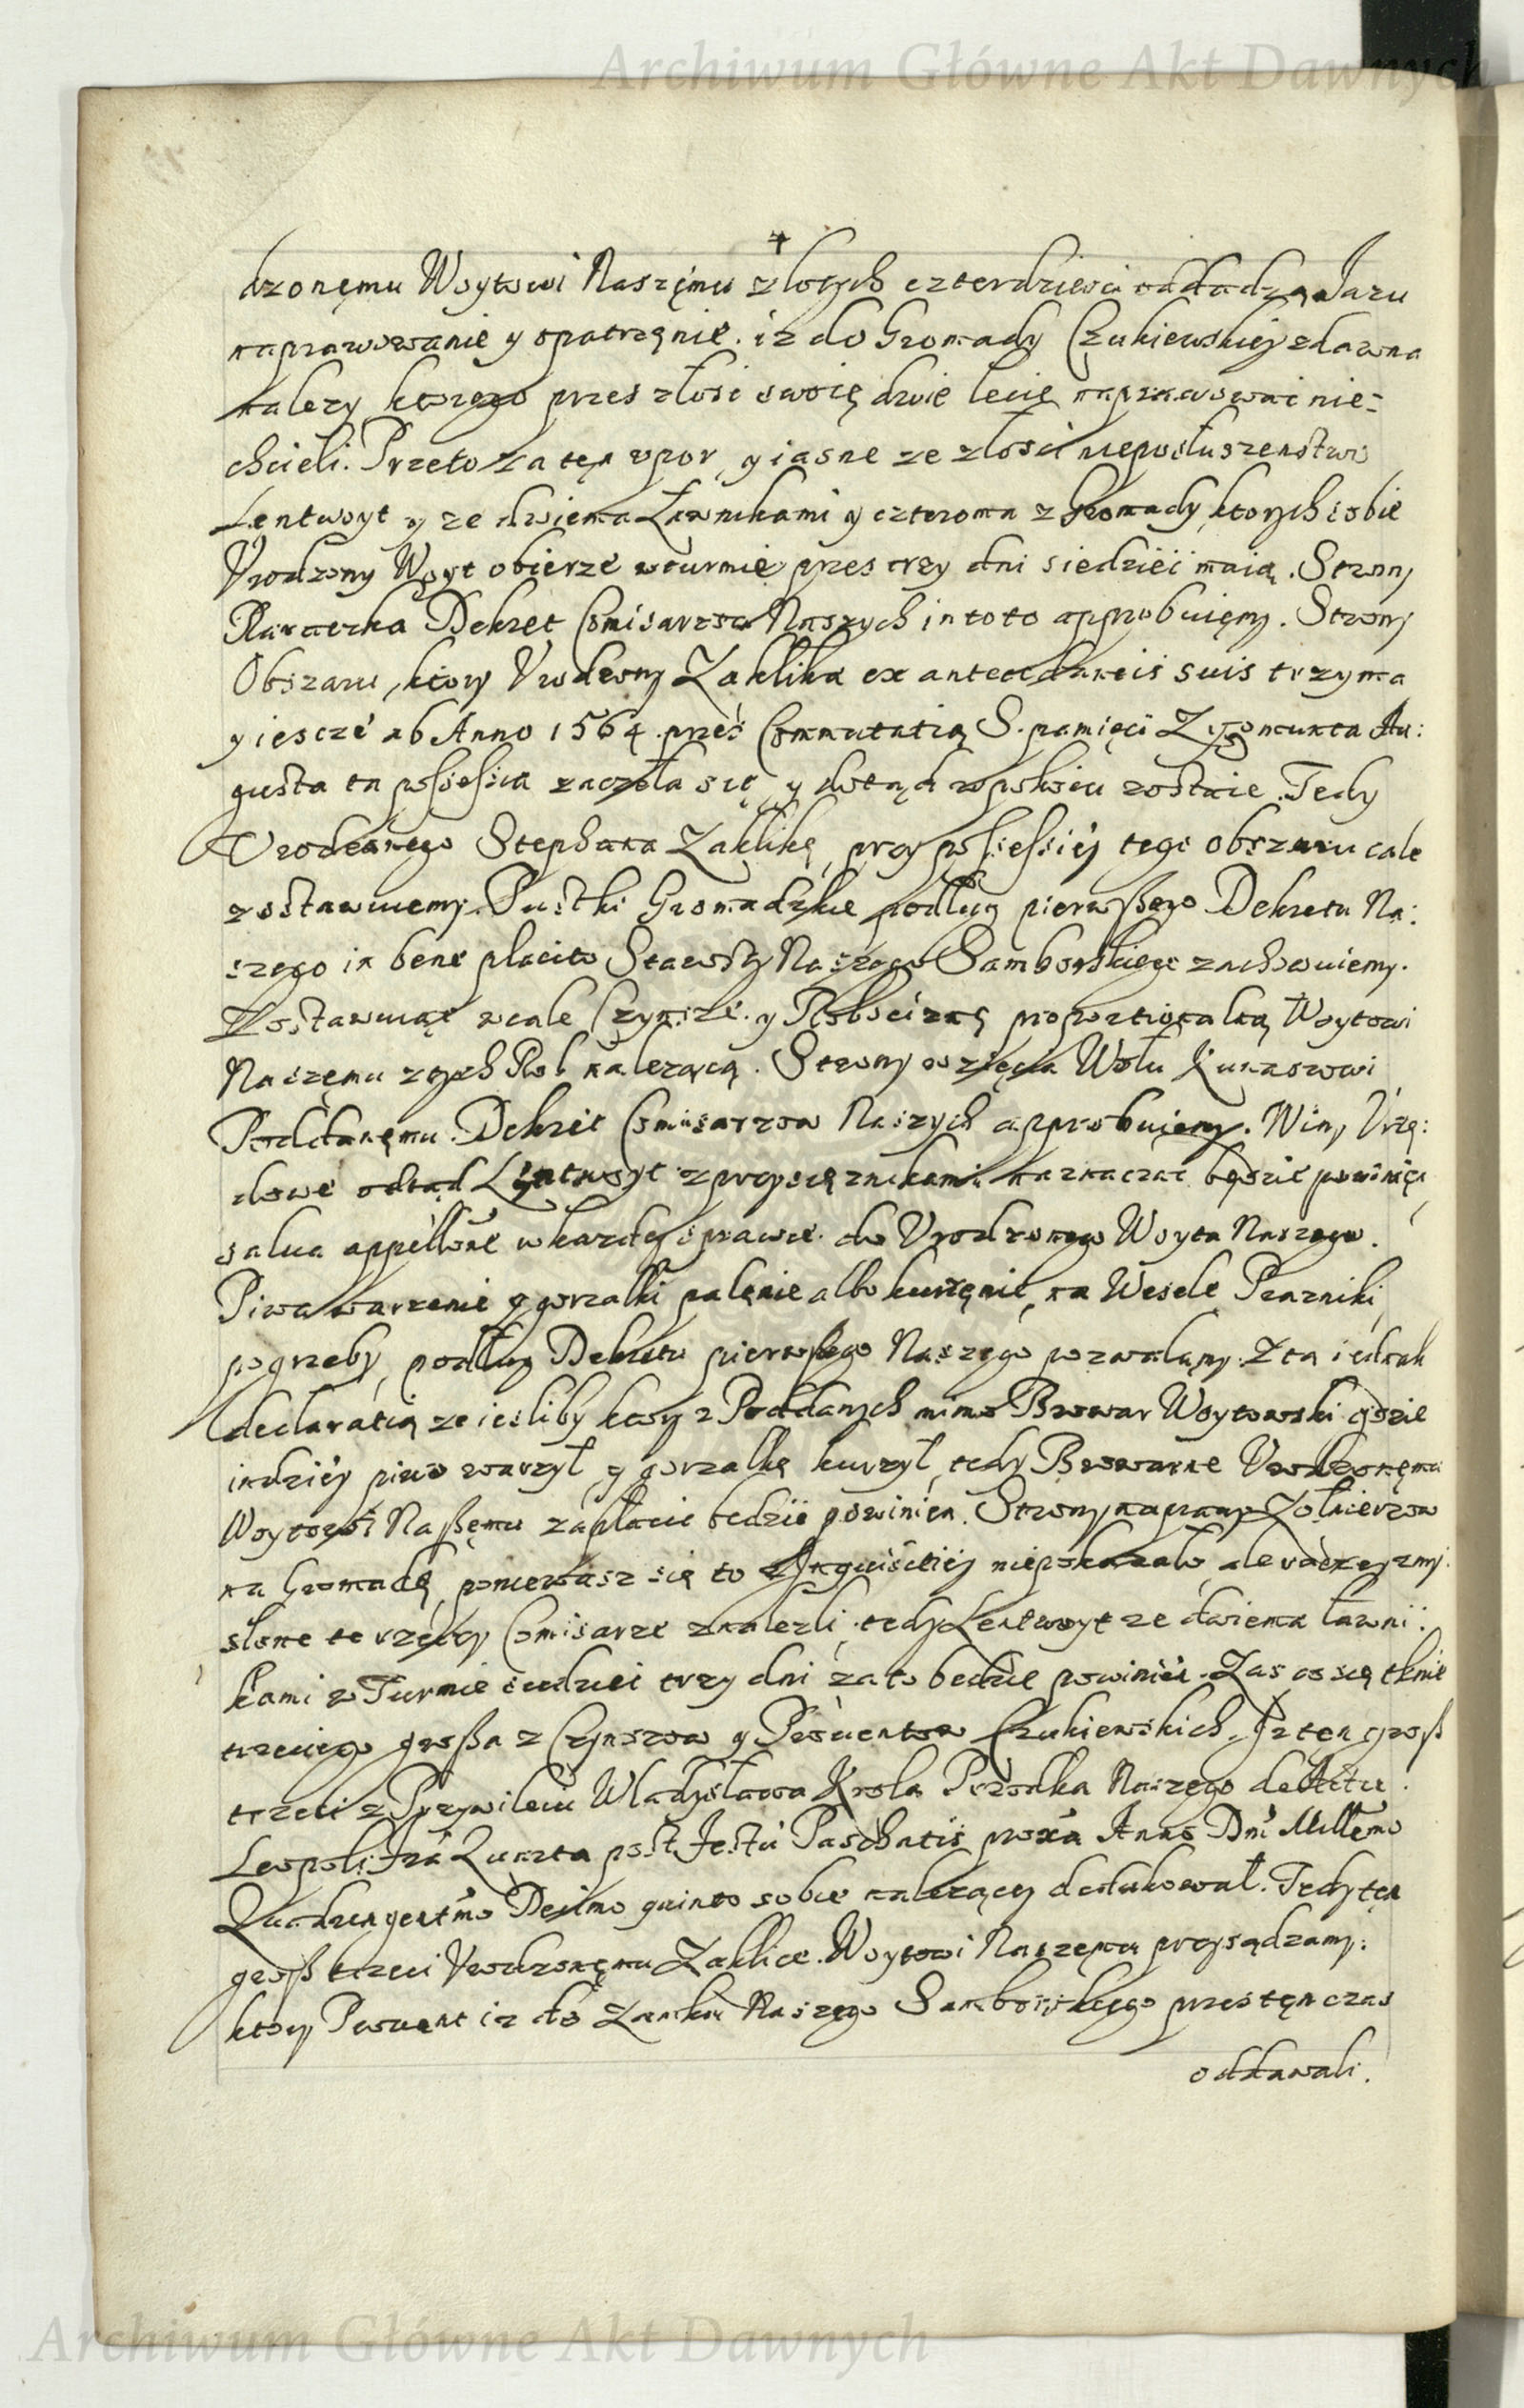 Archiwum Główne Akt Dawnych
dzonęmu Woytowi Naszęmu złotych czterdziesci nadadzą Jazu
naprawowanie y opatrzęnie. iz do Gromady Czukiewskiey zdawna
nalezy ktorego przes złosc swoię dwie lecie naprawowac nie=
chcieli. Przeto za tęn vpor, y iasne ze złosci nieposłuszenstwo
Lentwoyt y ze dwiema Ławnikami y czteroma z Gromady, ktorych sobie
Vrodzony Woyt obierze wturmie przes trzy dni siedziec maią. Strony
Dekret Comisarzow Naszych in toto approbuięmy. Strony
Obszaru, ktory Vrodzony Zaklika ex antecedaneis suis trzyma
y iescze ab Anno 1564. przes Commutatią S. pamięci Zygmunta Au:
gusta ta possessia zaczęła się, y dotąd wpokoiu zostaie. Tedy
Vrodzonego Stephana Zaklikę, przy possessiey tego obszaru cale
zostawuiemy. Pustki Gromadzkie podług pierwßego Dekretu Na:
szego in bene placito Starosty Naszego Samborskiego zachowuiemy.
Zostawuiąc wcale Czynsze. y Robociznę proportionalną Woytowi
Naszęmu z tych Rol nalezącą. Strony wzięcia Wołu Łukaszowi
Poddanęmu. Dekret Comisarzow Naszych approbuięmy. Winy Vrzę:
dowe odtąd Lentwoyt z przysięznikami naznaczac będzie powinięn,
salua appellone w kazdey sprawie. do Vrodzonego Woyta Naszego.
Piwa warzenie y gorzałki palęnie albo kurzęnie, na Wesele Prazniki,
pogrzeby, podług Dekretu pierwßego Naszego pozwalamy. Z tą iednak
declaratią ze iesliby ktory z Poddanych mimo Browar Woytowski gdzie
indziey piwo warzył, y gorzałkę kurzył, tedy Browarne Vrodzonęmu
Woytowi Naßęmu zapłacic bedzie powinien. Strony naprawy Zołnierzow
na Gromadę, poniewasz się to z Inquisitiey niepokazało, ale vdatne y zmy:
slone te rzeczy Comisarze znalezli, tedy Lentwoyt ze dwiema ławni:
kami w Turmie siedziec trzy dni za to bedzie powinien. Zas co się tknie
trzeciego großa z Czynszow y Prowentow Czukiewskich. Iz ten groß
trzeci z Przywileiu Władysława Krola Przodka Naszego de Actu
Leopoli Fria Quarta post Festu Paschatis proxa Anno Dni Millemo
Quadringentmo Decimo quinto sobie nalezący dedukował. Tedy tęn
groß trzeci Vrodzonęmu Zaklice. Woytowi Naszęmu przysądzamy.
ktory Prowent iz do Zamku Naszego Samborskiego przes tęn czas
oddawali.
Archiwum Główne Akt Dawnych